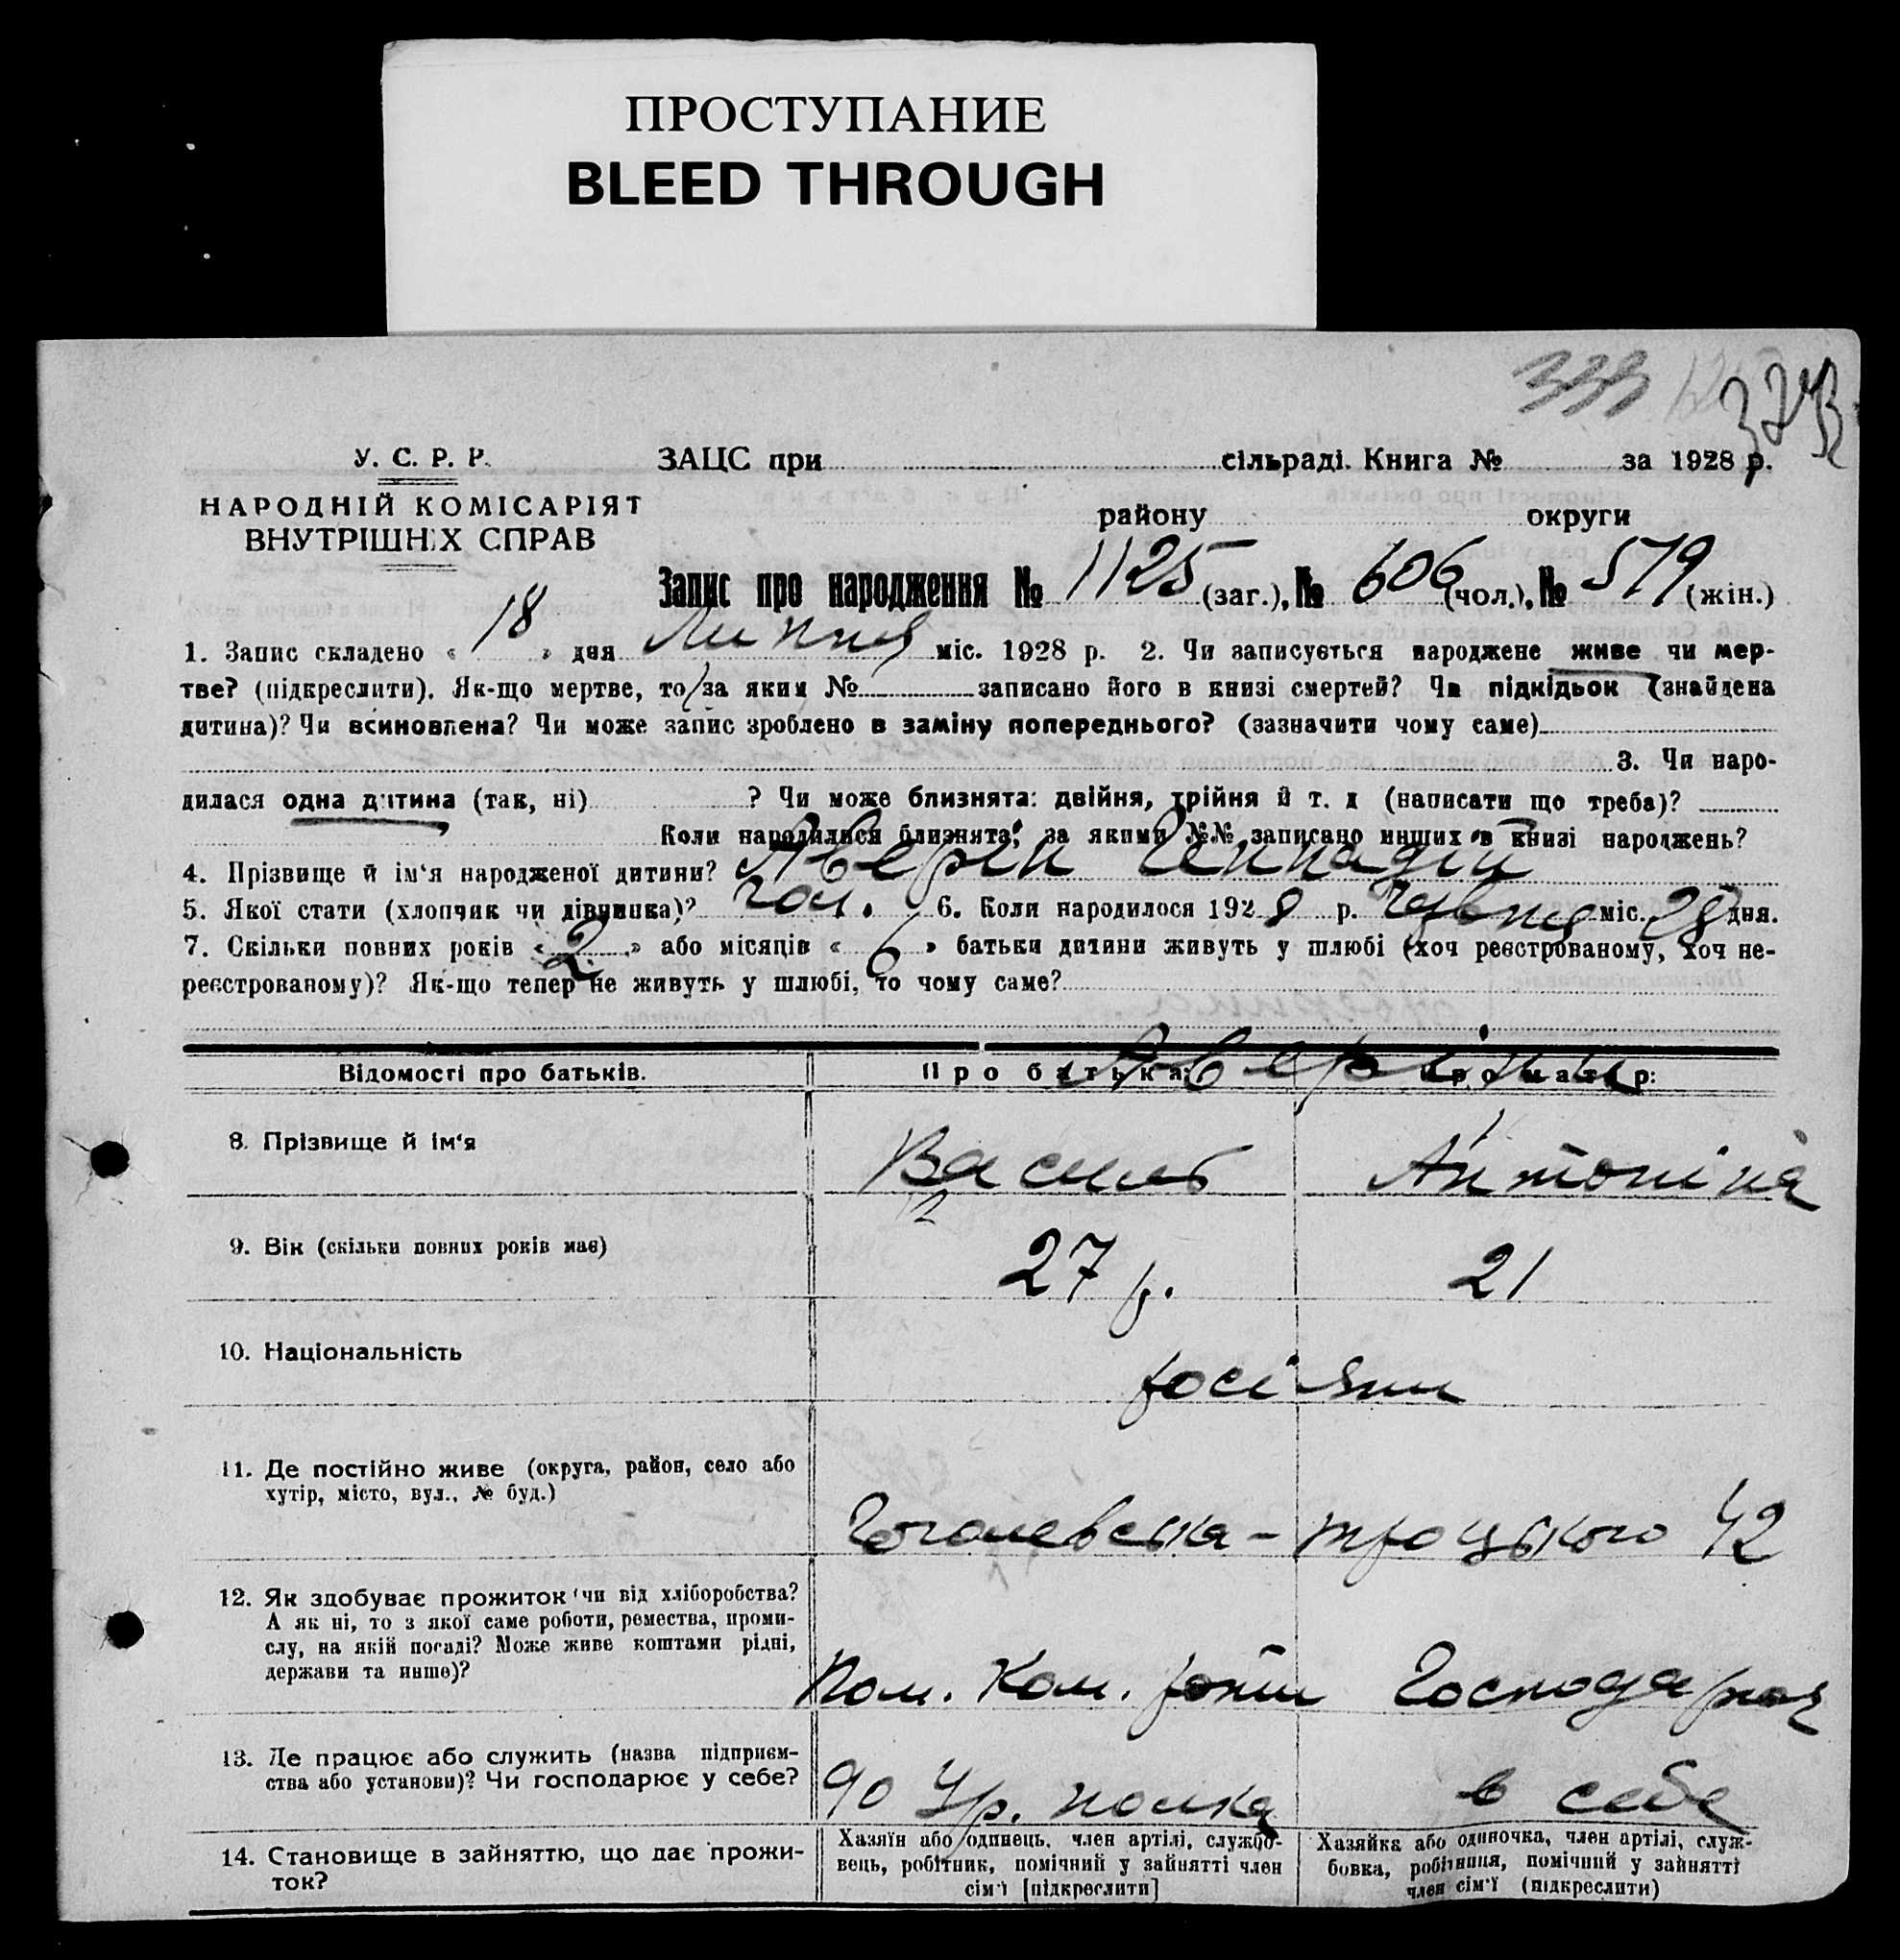 ПРОСТУПАНИЕ
BLEED THROUGH
339
У. С. Р. Р.
ЗАЦС при сільраді. Книга № за 1928 р.
НАРОДНІЙ КОМІСАРІЯТ
ВНУТРІШНІХ СПРАВ
району округи
Запис про народження № 1125 (заг.), № 606 (чол.), № 519 (жін.)
1. Запис складено « 18 » дня Липня міс. 1928 р. 2. Чи записується народжене живе чи мер-
тве? (підкреслити). Як-що мертве, то за яким № записано його в книзі смертей? Чи підкідьок (знайдена
дитина)? Чи всиновлена? Чи може запис зроблено в заміну попереднього? (зазначити чому саме)
3. Чи наро-
дилася одна дитина (так, ні) ? Чи може близнята: двійня, трійня й т. д (написати що треба)?
Коли народилися близнята, за якими №№ записано инших в книзі народжень?
4. Прізвище й ім'я народженої дитини? Аверін Геннадій
5. Якої статі (хлопчик чи дівчинка)? чол. 6. Коли народилося 1928 р. Червня міс. 28 дня.
7. Скільки повних років « 2 » або місяців « 6 » батьки дитини живуть у шлюбі (хоч реєстрованому, хоч не-
реєстрованому)? Як-що тепер не живуть у шлюбі, то чому саме?
Аверіни
Відомості про батьків. Про батька: Про матір:
8. Прізвище й ім'я Василь Антоніна
9. Вік (скільки повних років має) 27 р. 21
10. Національність росіяни
11. Де постійно живе (округа, район, село або
хутір, місто, вул., № буд.)
Гоголевська - Троцького 42
12. Як здобуває прожиток чи від хліборобства?
А як ні, то з якої саме роботи, ремества, проми-
слу, на якій посаді? Може живе коштами рідні,
держави та инше)?
Пом. Ком. роти Господарка
13. Де працює або служить (назва підприєм-
ства або установи)? Чи господарює у себе?
90 Ур. полка в себе
14. Становище в зайняттю, що дає прожи-
ток?
Хазяїн або одинець, член артілі, службо-
вець, робітник, помічний у зайнятті член
сім'ї [підкреслити]
Хазяйка або одиночка, член артілі, служ-
бовка, робітниця, помічний у зайнятті
член сім'ї (підкреслити)